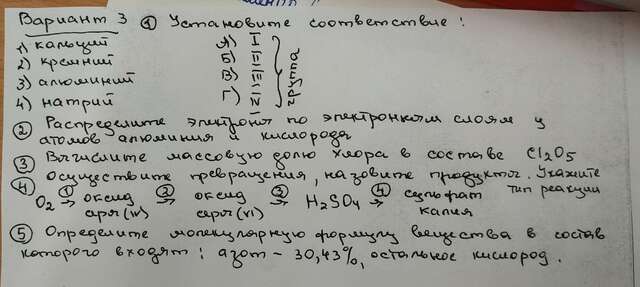 Вариант 3 ① Установите соответствие:
1) кальций А) I
2) кремний Б) II
3) алюминий В) III
4) натрий Г) IV
группа
② Распределите электроны по электронным слоям у
атомов алюминия и кислорода
③ Вычислите массовую долю хлора в составе Cl2O5
④ осуществите превращения, назовите продукты. Укажите
тип реакции
O2 ①→ оксид серы(IV) ②→ оксид серы(VI) ③→ H2SO4 ④→ сульфат калия
⑤ Определите молекулярную формулу вещества в состав
которого входят: азот - 30,43%, остальное кислород.